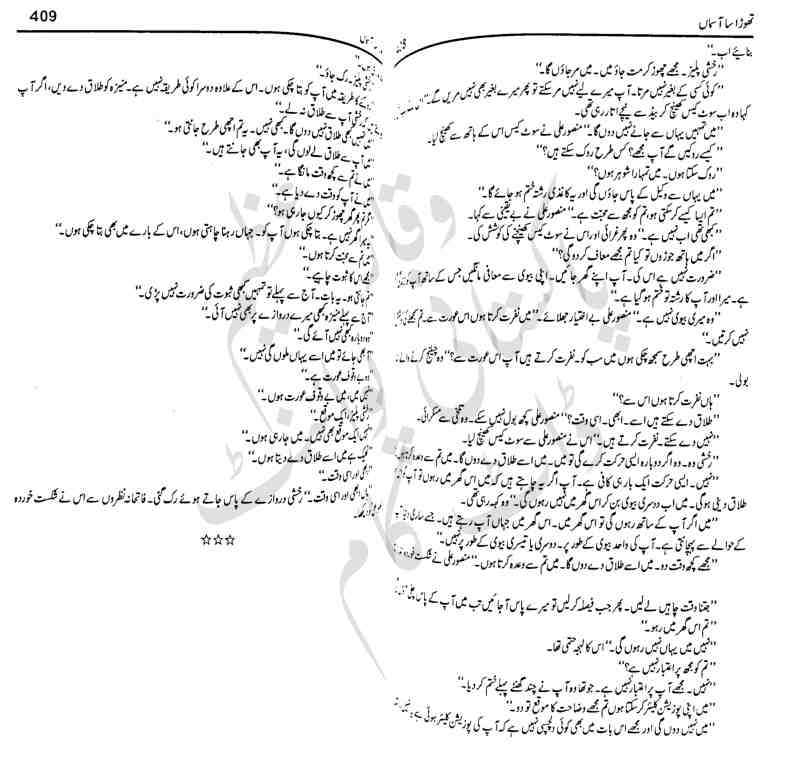 409
تھوڑا سا آسماں
بتائیے اب۔‘‘
’’رخشی پلیز۔ مجھے چھوڑ کر مت جاؤ میں۔ میں مر جاؤں گا۔‘‘
’’کوئی کسی کے بغیر نہیں مرتا۔ آپ میرے لیے نہیں مر سکتے تو پھر میرے بغیر بھی نہیں مریں گے۔‘‘
کہا وہ اب سوٹ کیس کھینچ کر بیڈ سے نیچے اتار رہی تھی۔
’’میں تمہیں یہاں سے جانے نہیں دوں گا۔‘‘ منصور علی نے سوٹ کیس اس کے ہاتھ سے کھینچ لیا۔
’’کیسے روکیں گے آپ مجھے؟ کس طرح روک سکتے ہیں؟‘‘
’’روک سکتا ہوں۔ میں تمہارا شوہر ہوں؟‘‘
’’میں یہاں سے وکیل کے پاس جاؤں گی اور یہ کاغذی رشتہ ختم ہو جائے گا۔‘‘
’’تم ایسا کیسے کر سکتی ہو، تم کو مجھ سے محبت ہے۔‘‘ منصور علی نے بے یقینی سے کہا۔
’’کبھی تھی اب نہیں ہے۔‘‘ وہ پھر غرائی اور اس نے سوٹ کیس کھینچنے کی کوشش کی۔
’’اگر میں ہاتھ جوڑوں تو کیا تم مجھے معاف کر دو گی؟‘‘
’’ضرورت نہیں ہے اس کی۔ آپ اپنے گھر جائیں۔ اپنی بیوی سے معافی مانگیں جس کے ساتھ آپ کو
ہے۔ میرا اور آپ کا رشتہ تو ختم ہو گیا ہے۔‘‘
’’وہ میری بیوی نہیں ہے۔‘‘ منصور علی بے اختیار جھلائے۔ ’’میں نفرت کرتا ہوں اس عورت سے۔ تم
نہیں کرتیں۔‘‘
’’بہت اچھی طرح سمجھ چکی ہوں میں سب کو۔ نفرت کرتے ہیں آپ اس عورت سے؟‘‘ وہ چیلنج کرنے والے
بولی۔
’’ہاں نفرت کرتا ہوں اس سے؟‘‘
’’طلاق دے سکتے ہیں اسے۔ ابھی۔ اسی وقت؟‘‘ منصور علی کچھ بول نہیں سکے۔ وہ تلخی سے مسکرائی۔
’’نہیں دے سکتے۔ نفرت کرتے ہیں۔‘‘ اس نے منصور علی سے سوٹ کیس کھینچ لیا۔
’’رخشی وہ۔ وہ اگر دوبارہ ایسی حرکت کرے گی تو میں۔ میں اسے طلاق دے دوں گا۔ میں تم سے وعدہ کرتا ہوں۔
’’نہیں۔ ایسی حرکت ایک بار ہی کافی ہے۔ آپ اگر یہ چاہتے ہیں کہ میں اس گھر میں رہوں تو آپ کو
طلاق دینی ہو گی۔ میں اب دوسری بیوی بن کر اس گھر میں نہیں رہوں گی۔‘‘ وہ کہہ رہی تھی۔
’’میں اگر آپ کے ساتھ رہوں گی تو اس گھر میں۔ اس گھر میں جہاں آپ رہتے ہیں۔ جسے ساری دنیا
کے حوالے سے پہچانتی ہے۔ آپ کی واحد بیوی کے طور پر۔ دوسری یا تیسری بیوی کے طور پر نہیں۔‘‘
’’مجھے کچھ وقت دو۔ میں اسے طلاق دے دوں گا۔ میں تم سے وعدہ کرتا ہوں۔‘‘ منصور علی نے شکست خوردہ
’’جتنا وقت چاہیں لے لیں۔ پھر جب فیصلہ کر لیں تو میرے پاس آ جائیں تب میں آپ کے پاس
’’تم اس گھر میں رہو۔‘‘
’’نہیں میں یہاں نہیں رہوں گی۔‘‘ اس کا لہجہ حتمی تھا۔
’’تم کو مجھ پر اعتبار نہیں ہے؟‘‘
’’نہیں۔ مجھے آپ پر اعتبار نہیں ہے۔ جو تھا وہ آپ نے چند گھنٹے پہلے ختم کر دیا۔‘‘
’’میں اپنی پوزیشن کلیئر کر سکتا ہوں تم مجھے وضاحت کا موقع تو دو۔‘‘
’’میں نہیں دوں گی اور مجھے اس بات میں بھی کوئی دلچسپی نہیں ہے کہ آپ کی پوزیشن کلیئر ہوتی ہے
پلیز۔ رک جاؤ۔‘‘
طریقہ میں آپ کو بتا چکی ہوں۔ اس کے علاوہ دوسرا کوئی طریقہ نہیں ہے۔ منیزہ کو طلاق دے دیں، اگر آپ
آپ سے طلاق نہ لے۔‘‘
کبھی طلاق نہیں دوں گا۔ کبھی نہیں۔ یہ تم اچھی طرح جانتی ہو۔‘‘
آپ سے طلاق لے لوں گی، یہ آپ بھی جانتے ہیں۔‘‘
نے تم سے کچھ وقت مانگا ہے۔
نے آپ کو وقت دے دیا ہے۔
گھر چھوڑ کر کیوں جا رہی ہو؟‘‘
گھر نہیں ہے۔ بتا چکی ہوں آپ کو۔ جہاں رہنا چاہتی ہوں، اس کے بارے میں بھی بتا چکی ہوں۔‘‘
تم سے محبت کرتا ہوں۔
اس کا ثبوت چاہیے۔‘‘
ہو۔ یہ بات۔ آج سے پہلے تو تمہیں کبھی ثبوت کی ضرورت نہیں پڑی۔‘‘
آج سے پہلے منیزہ بھی میرے دروازے پر بھی نہیں آئی۔‘‘
دوبارہ بھی نہیں آئے گی۔‘‘
بھی جائے تو میں اسے یہاں ملوں گی نہیں۔‘‘
بے وقوف عورت ہے۔‘‘
نہیں، میں بے وقوف عورت ہوں۔‘‘
پلیز ایک موقع۔‘‘
ایک موقع بھی نہیں۔ میں جا رہی ہوں۔‘‘
ہے میں اسے طلاق دے دیتا ہوں۔‘‘
ابھی اور اسی وقت۔‘‘
ابھی اور اسی وقت۔‘‘ رخشی دروازے کے پاس جاتے ہوئے رک گئی۔ فاتحانہ نظروں سے اس نے شکست خوردہ
☆☆☆